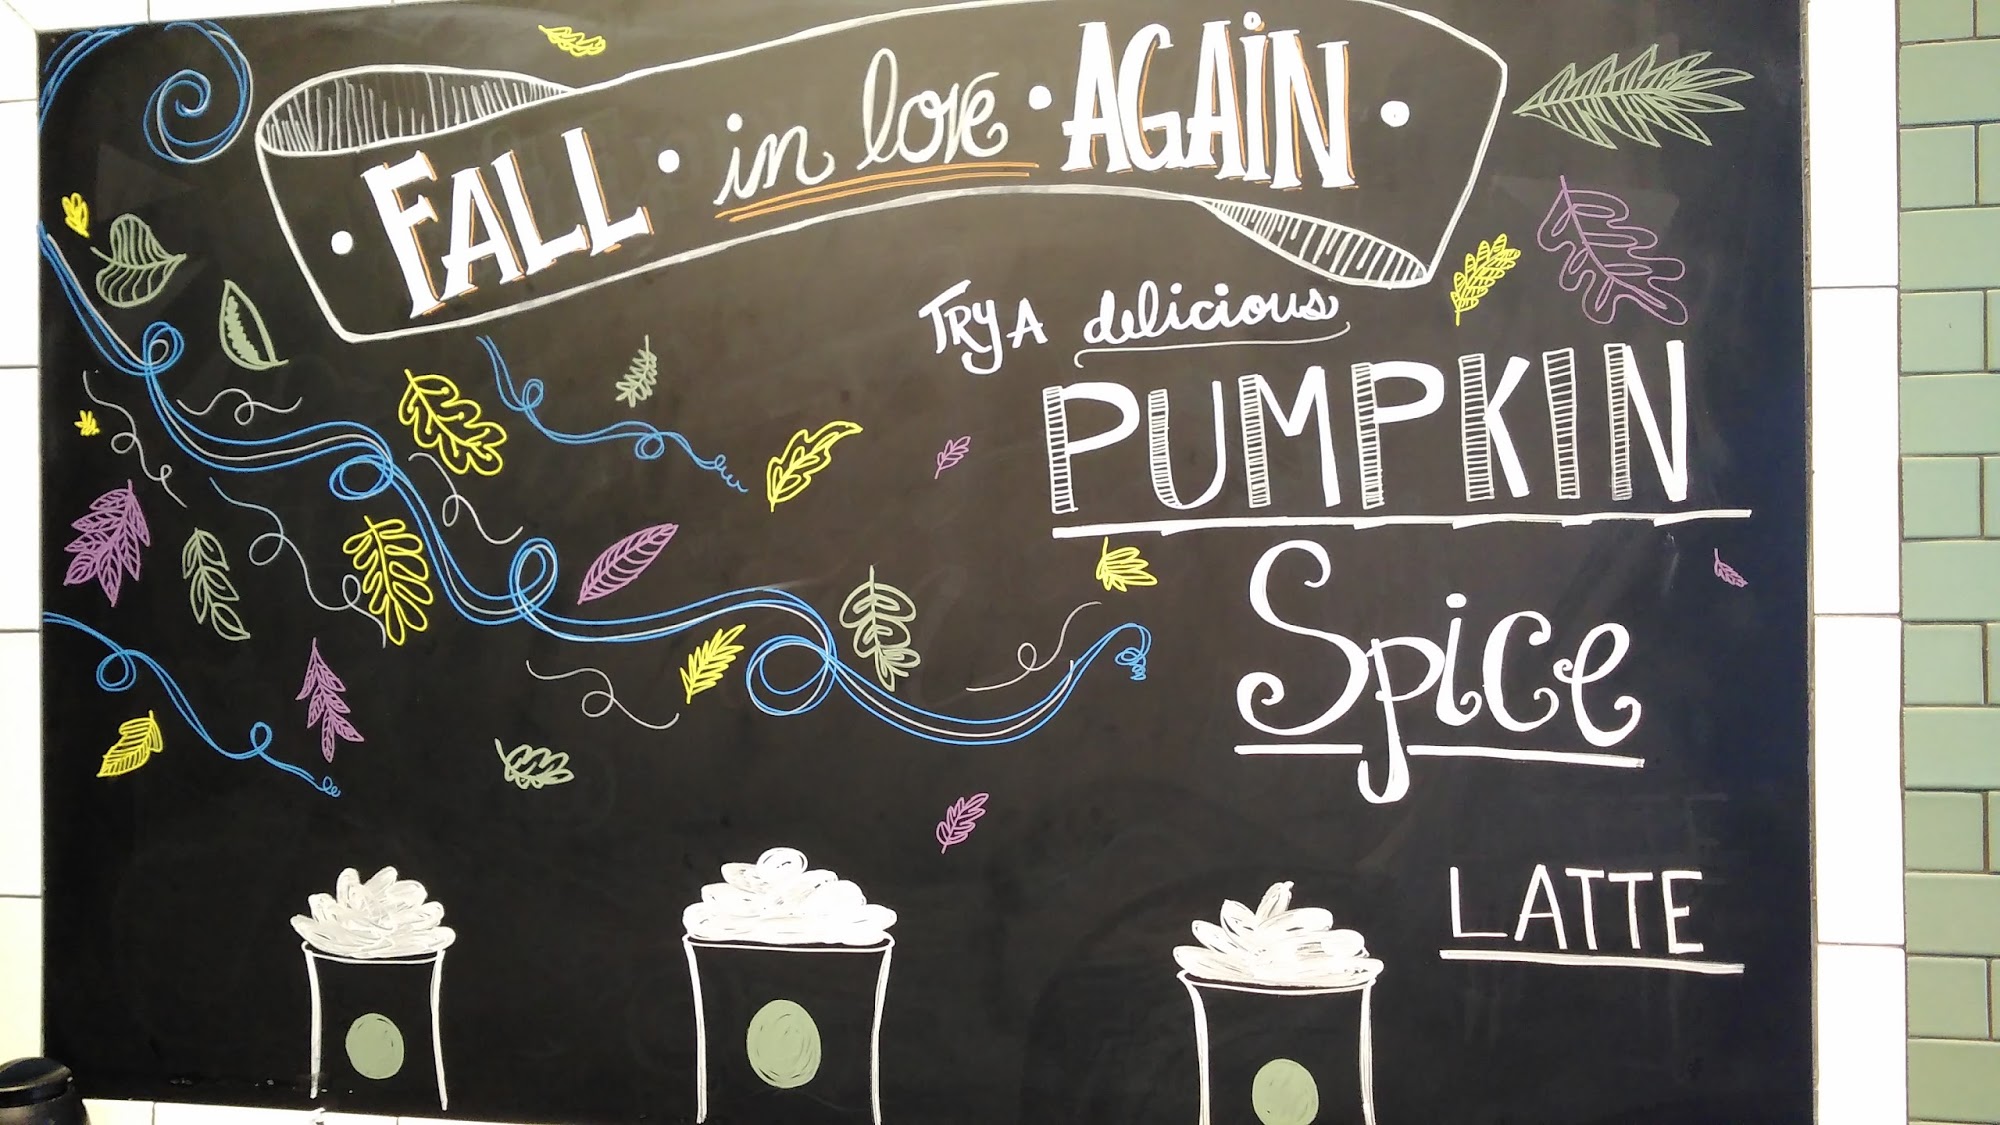 FALL • in love • AGAIN •
TRY A delicious
PUMPKIN
Spice
LATTE